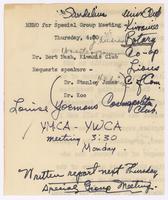 Sandelius Univ Club
MEMO for Special Group Meeting Kiwanis
Thursday, 4:00 Rotary
Co-op
Dr. Bert Nash, Kiwanis Club Lions
Requests speakers - C of Com.
Dr. Stanley Jones
Dr. Koo
Louise Yoemans Cosmopolitan Club
YMCA - YWCA
meeting 3:30
Monday.
Written report next Thursday
Special Group Meeting.